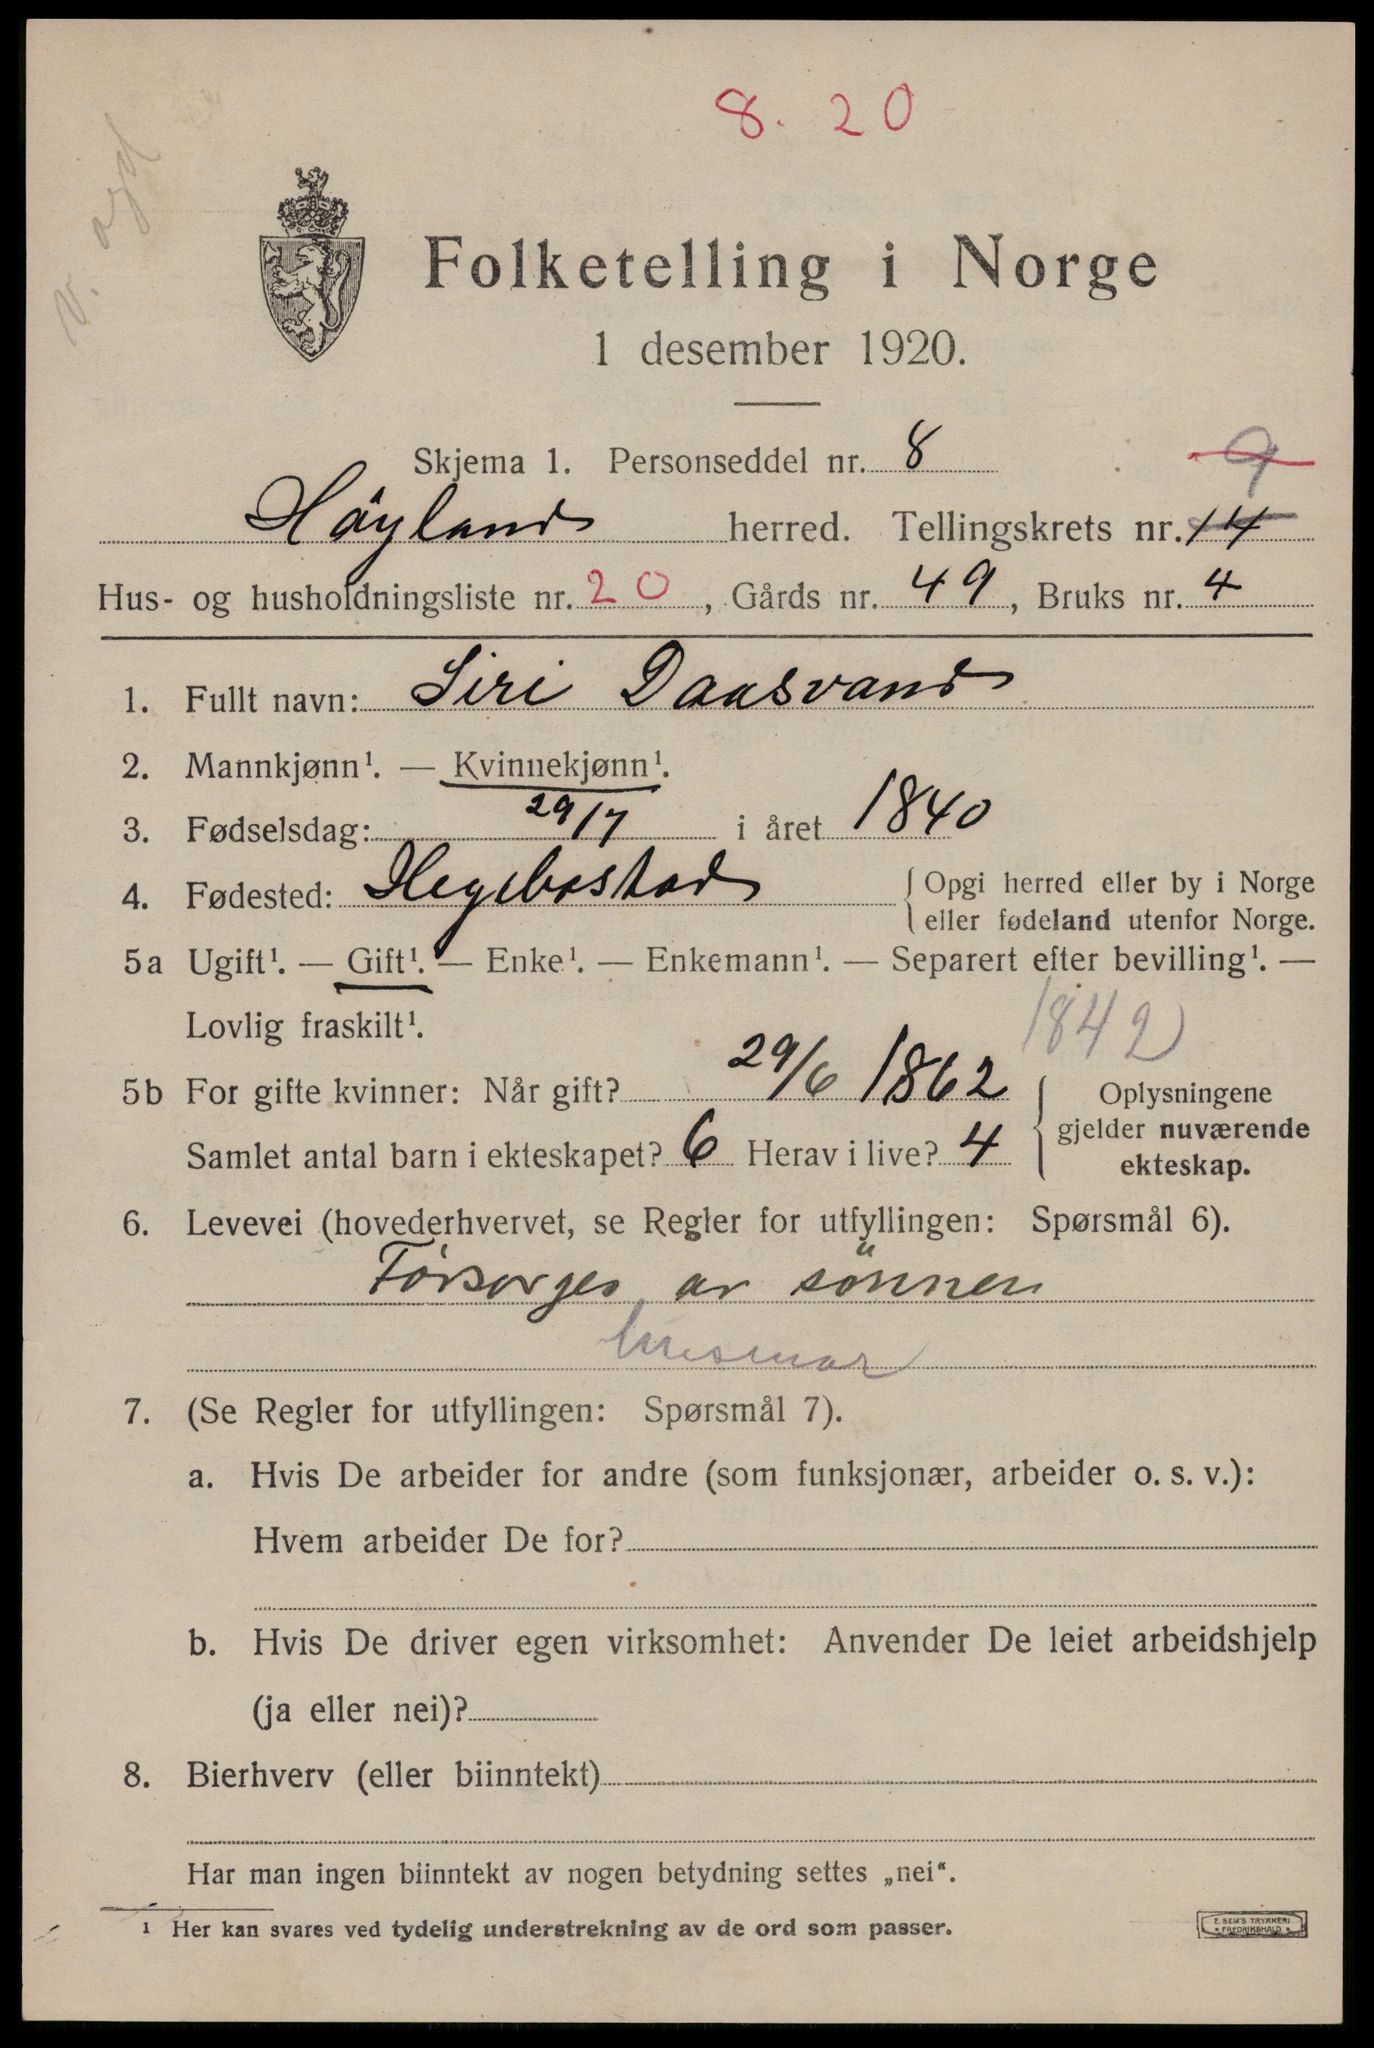 8. 20
v. agd
Folketelling i Norge
1 desember 1920.
Skjema 1. Personseddel nr. 8
9
Höyland herred. Tellingskrets nr. 14
Hus- og husholdningsliste nr. 20, Gårds nr. 49, Bruks nr. 4
1. Fullt navn: Siri Daasvand
2. Mannkjønn¹. — Kvinnekjønn¹.
3. Fødselsdag: 29/7 i året 1840
4. Fødested: Hegebostad { Opgi herred eller by i Norge
eller fødeland utenfor Norge.
5a Ugift¹. — Gift¹. — Enke¹. — Enkemann¹. — Separert efter bevilling¹. —
Lovlig fraskilt¹.
1842
5b For gifte kvinner: Når gift? 29/6 1862 { Oplysningene
gjelder nuværende
Samlet antal barn i ekteskapet? 6 Herav i live? 4
ekteskap.
6. Levevei (hovederhvervet, se Regler for utfyllingen: Spørsmål 6).
Forsørges av sönnen
7. (Se Regler for utfyllingen: Spørsmål 7).
a. Hvis De arbeider for andre (som funksjonær, arbeider o. s. v.):
Hvem arbeider De for?
b. Hvis De driver egen virksomhet: Anvender De leiet arbeidshjelp
(ja eller nei)?
8. Bierhverv (eller biinntekt)
Har man ingen biinntekt av nogen betydning settes „nei“.
¹ Her kan svares ved tydelig understrekning av de ord som passer.
E. SEM'S TRYKKERI
FREDRIKSHALD